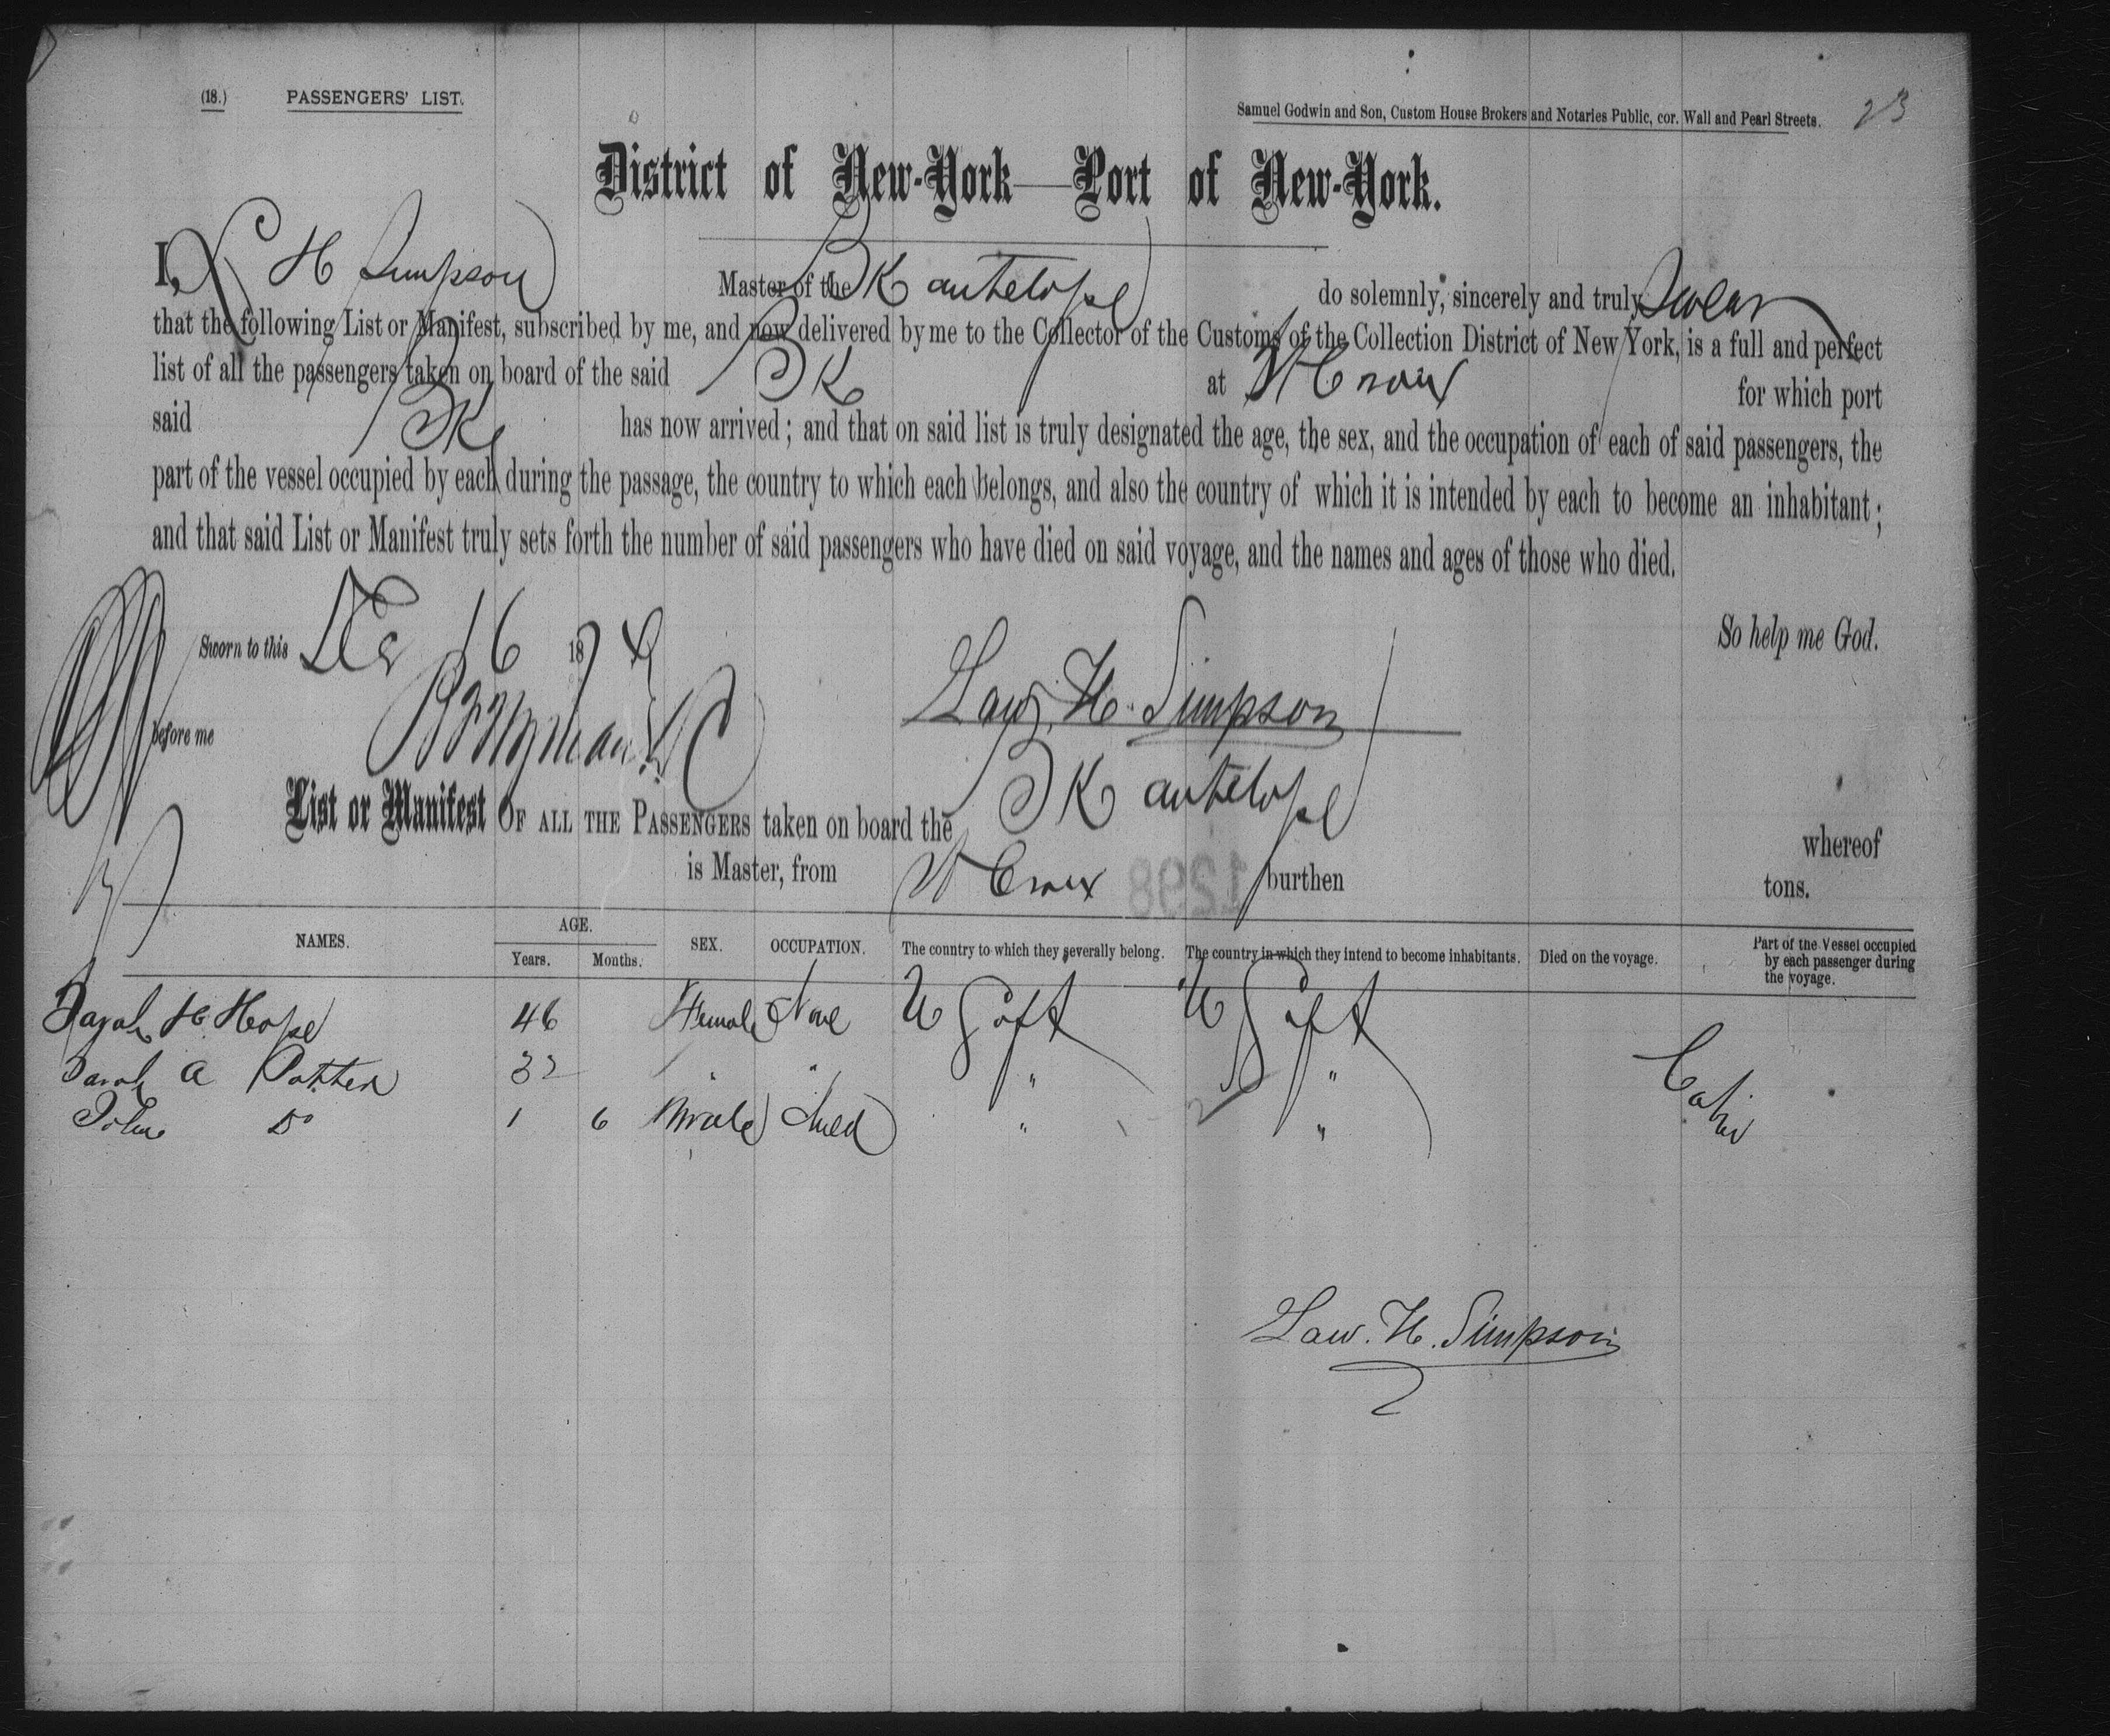 (18.) PASSENGERS' LIST.
Samuel Godwin and Son, Custom House Brokers and Notaries Public, cor. Wall and Pearl Streets. 23
District of New-York—Port of New-York.
I, L H Simpson Master of the Bk antelope do solemnly, sincerely and truly Swear
that the following List or Manifest, subscribed by me, and now delivered by me to the Collector of the Customs of the Collection District of New York, is a full and perfect
list of all the passengers taken on board of the said Bk at St Croix for which port
said Bk has now arrived; and that on said list is truly designated the age, the sex, and the occupation of each of said passengers, the
part of the vessel occupied by each during the passage, the country to which each belongs, and also the country of which it is intended by each to become an inhabitant;
and that said List or Manifest truly sets forth the number of said passengers who have died on said voyage, and the names and ages of those who died.
So help me God.
Sworn to this Dec 16 187
Law. H. Simpson
before me
List or Manifest OF ALL THE PASSENGERS taken on board the Bk antelope whereof
is Master, from St Croix burthen tons.
1298
NAMES. AGE. Years. Months. SEX. OCCUPATION. The country to which they severally belong. The country in which they intend to become inhabitants. Died on the voyage. Part of the Vessel occupied by each passenger during the voyage.
Sarah H Hope 46 Female None U S of A U S of A
Sarah A Potter 32 " " " " Cabin
John Do 1 6 Male Child " "
Law. H. Simpson